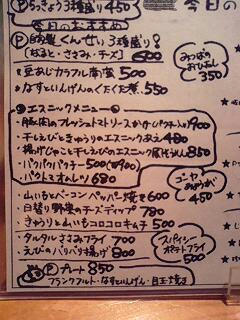 Ⓟらっきょう3種盛り 450
今日のおすすめ
Ⓟ自家製くんせい3種盛り!
[なると・ささみ・チーズ] 600
☆豆あじカラフル南蛮 500
☆なすといんげんのくたくた煮 550
みつばのおひたし 350
◎エスニックメニュー◎
・豚肉のフレッシュトマトソースかけ(パクチー入り)900
・干しえびときゅうりのエスニックあえ 480
・揚げじゃこと干しえびのエスニック 850
・パクパクパクチー 500
・パクトマオムレツ 680
・山いもとベーコンペッパー焼き 600
・日替り野菜のチーズディップ 780
・きゅうりと山いもコロコロキムチ 500
ゴーヤ 450
・タルタルささみフライ 700
・えびのパリパリ揚げ 800
スパイシーポテトフライ 500
Ⓟプレート 850
フランクフルト・なすといんげん・目玉焼き
今日の